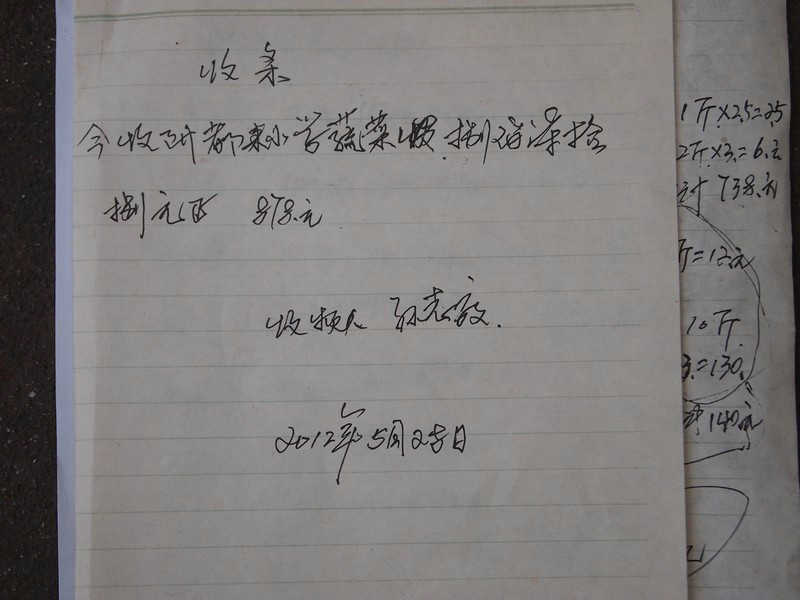 收条
今收到都来小学蔬菜款捌佰柒拾
捌元正 878.元
收领人 孙志敏.
2012年5月28日
1斤×2.5=25
2斤×3.=6.元
计 738.元
斤=12.元
10斤
3.=130.
计140元